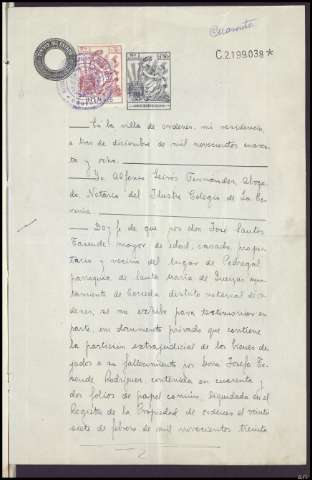 Cuarenta
C.2199038*
En la villa de ordenes, mi residencia,
a tres de diciembre de mil novecientos cuaren-
ta y ocho.
Yo Alfonso Fernández, aboga-
do Notario del Ilustre Colegio de La Co-
ruña
Doy fe de que por don José Santos
Facende mayor de edad, casado, propie-
tario y vecino del lugar de Pedregal
parroquia de Santa María de ayun-
tamiento de distrito notarial de or-
denes, se me exhibe para testimoniar en
parte, un documento privado que contiene
la partición extrajudicial de los bienes de-
jados a su fallecimiento por Josefa Fa-
cende Rodríguez, contenida en cuarenta y
dos folios de papel común, liquidada en el
Registro de la Propiedad de ordenes el veinti
siete de febrero de mil novecientos treinta